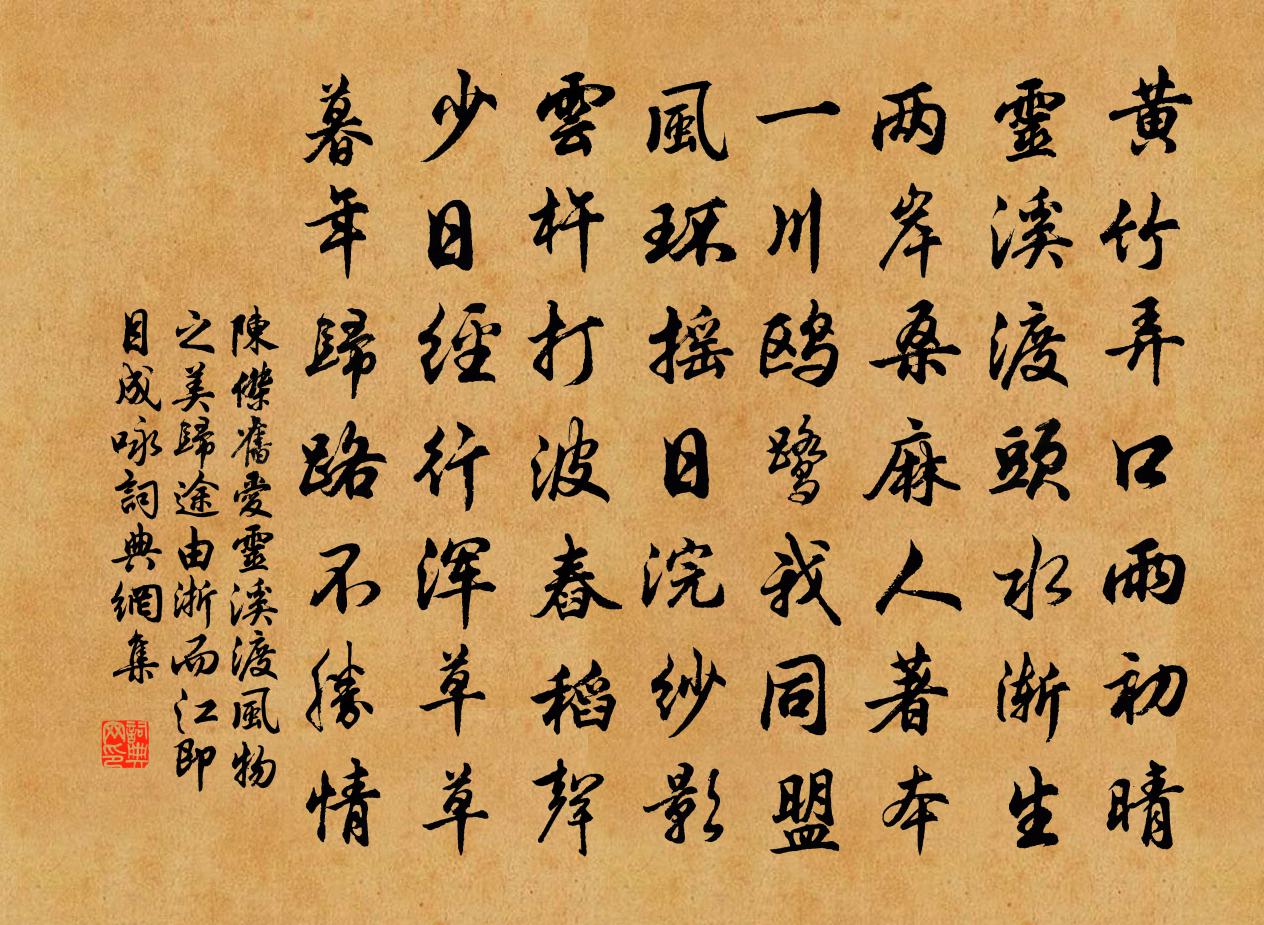 黃竹弄口雨初晴
靈溪渡頭水漸生
兩岸桑麻人著本
一川鷗鷺我同盟
風环搖日浣紗影
雲杵打波舂稻聲
少日經行渾草草
暮年歸路不勝情
陳傑舊愛靈溪渡風物
之美歸途由浙而江即
目成咏詞典網集
詞典
网印